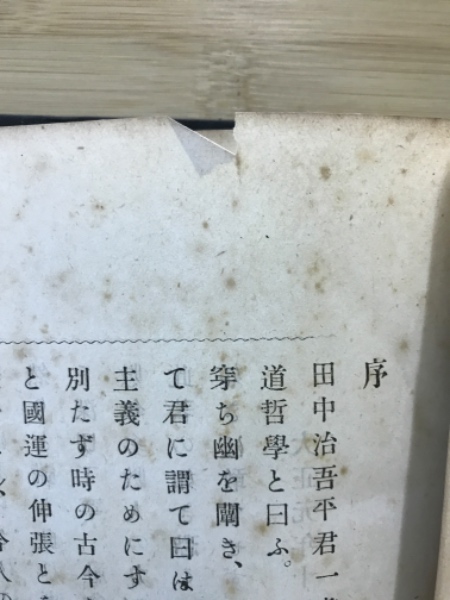 序
田中治吾平君一
道哲學と曰ふ。
穿ち幽を闡き、
て君に謂て曰は
主義のためにす
別たず時の古今
と國運の伸張と